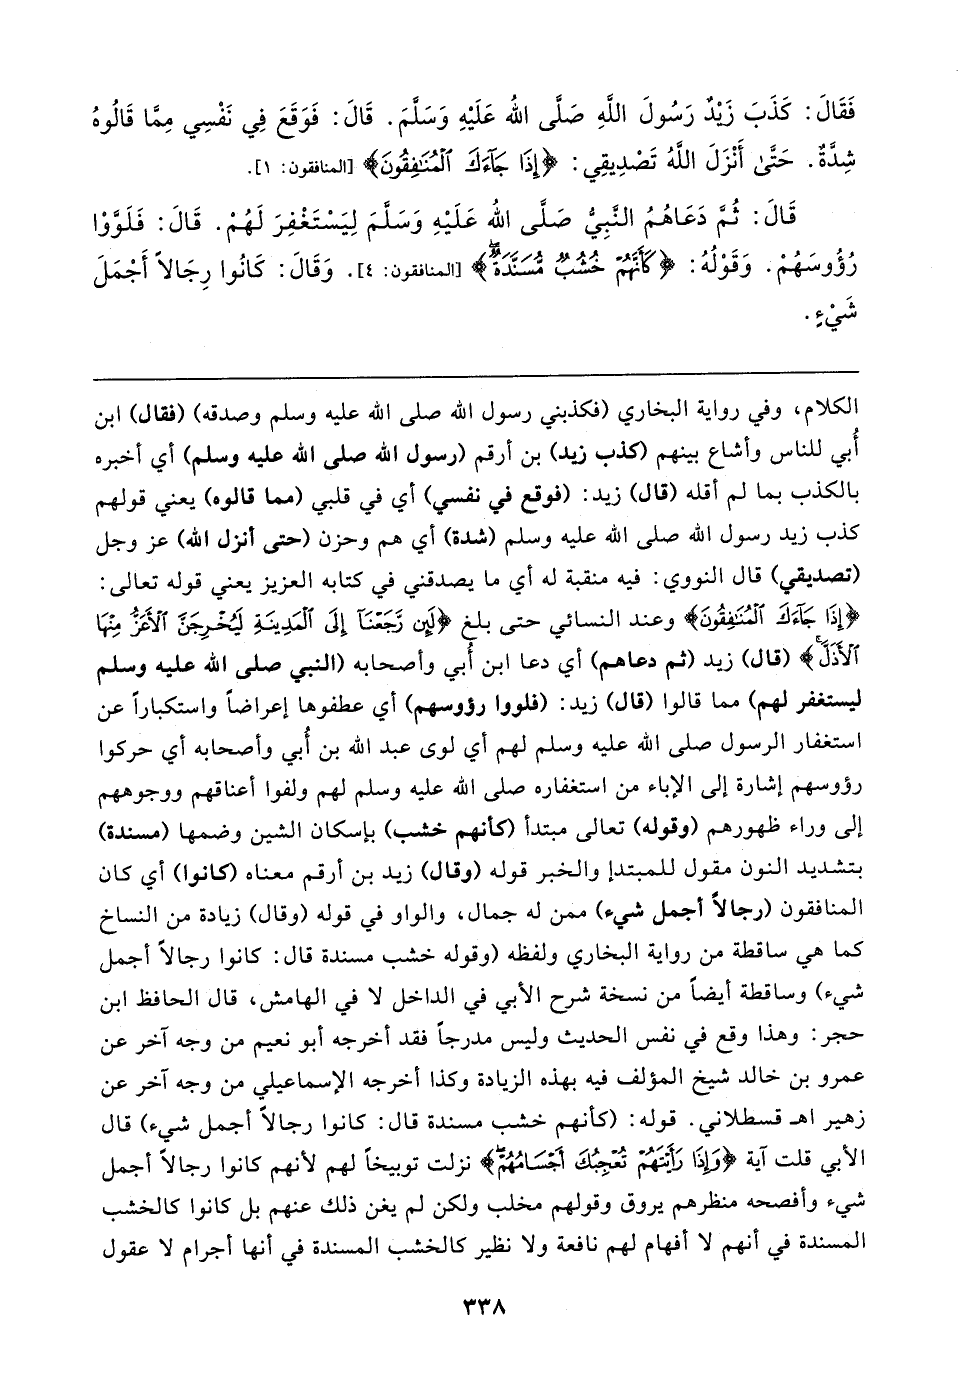 فَقَالَ: كَذَبَ زَيْدٌ رَسُولَ اللَّهِ صَلَّى اللهُ عَلَيْهِ وَسَلَّمَ. قَالَ: فَوَقَعَ فِي نَفْسِي مِمَّا قَالُوهُ
شِدَّةٌ. حَتَّىٰ أَنْزَلَ اللَّهُ تَصْدِيقِي: ﴿إِذَا جَآءَكَ ٱلْمُنَٰفِقُونَ﴾ [المنافقون: ١].
قَالَ: ثُمَّ دَعَاهُمُ النَّبِيُّ صَلَّى اللهُ عَلَيْهِ وَسَلَّمَ لِيَسْتَغْفِرَ لَهُمْ. قَالَ: فَلَوَّوْا
رُؤُوسَهُمْ. وَقَوْلُهُ: ﴿كَأَنَّهُمْ خُشُبٌ مُّسَنَّدَةٌ﴾ [المنافقون: ٤]. وَقَالَ: كَانُوا رِجَالاً أَجْمَلَ
شَيْءٍ.
الكلام، وفي رواية البخاري (فكذبني رسول الله صلى الله عليه وسلم وصدقه) (فقال) ابن
أُبي للناس وأشاع بينهم (كذب زيد) بن أرقم (رسول الله صلى الله عليه وسلم) أي أخبره
بالكذب بما لم أقله (قال) زيد: (فوقع في نفسي) أي في قلبي (مما قالوه) يعني قولهم
كذب زيد رسول الله صلى الله عليه وسلم (شدة) أي هم وحزن (حتى أنزل الله) عز وجل
(تصديقي) قال النووي: فيه منقبة له أي ما يصدقني في كتابه العزيز يعني قوله تعالى:
﴿إِذَا جَآءَكَ ٱلْمُنَٰفِقُونَ﴾ وعند النسائي حتى بلغ ﴿لَئِن رَّجَعْنَآ إِلَى ٱلْمَدِينَةِ لَيُخْرِجَنَّ ٱلْأَعَزُّ مِنْهَا
ٱلْأَذَلَّۚ﴾ (قال) زيد (ثم دعاهم) أي دعا ابن أُبي وأصحابه (النبي صلى الله عليه وسلم
ليستغفر لهم) مما قالوا (قال) زيد: (فلووا رؤوسهم) أي عطفوها إعراضاً واستكباراً عن
استغفار الرسول صلى الله عليه وسلم لهم أي لوى عبد الله بن أُبي وأصحابه أي حركوا
رؤوسهم إشارة إلى الإباء من استغفاره صلى الله عليه وسلم لهم ولفوا أعناقهم ووجوههم
إلى وراء ظهورهم (وقوله) تعالى مبتدأ (كأنهم خشب) بإسكان الشين وضمها (مسندة)
بتشديد النون مقول للمبتدإ والخبر قوله (وقال) زيد بن أرقم معناه (كانوا) أي كان
المنافقون (رجالاً أجمل شيء) ممن له جمال، والواو في قوله (وقال) زيادة من النساخ
كما هي ساقطة من رواية البخاري ولفظه (وقوله خشب مسندة قال: كانوا رجالاً أجمل
شيء) وساقطة أيضاً من نسخة شرح الأبي في الداخل لا في الهامش، قال الحافظ ابن
حجر: وهذا وقع في نفس الحديث وليس مدرجاً فقد أخرجه أبو نعيم من وجه آخر عن
عمرو بن خالد شيخ المؤلف فيه بهذه الزيادة وكذا أخرجه الإسماعيلي من وجه آخر عن
زهير اهـ قسطلاني. قوله: (كأنهم خشب مسندة قال: كانوا رجالاً أجمل شيء) قال
الأبي قلت آية ﴿وَإِذَا رَأَيْتَهُمْ تُعْجِبُكَ أَجْسَامُهُمْۖ﴾ نزلت توبيخاً لهم لأنهم كانوا رجالاً أجمل
شيء وأفصحه منظرهم يروق وقولهم مخلب ولكن لم يغن ذلك عنهم بل كانوا كالخشب
المسندة في أنهم لا أفهام لهم نافعة ولا نظير كالخشب المسندة في أنها أجرام لا عقول
٣٣٨